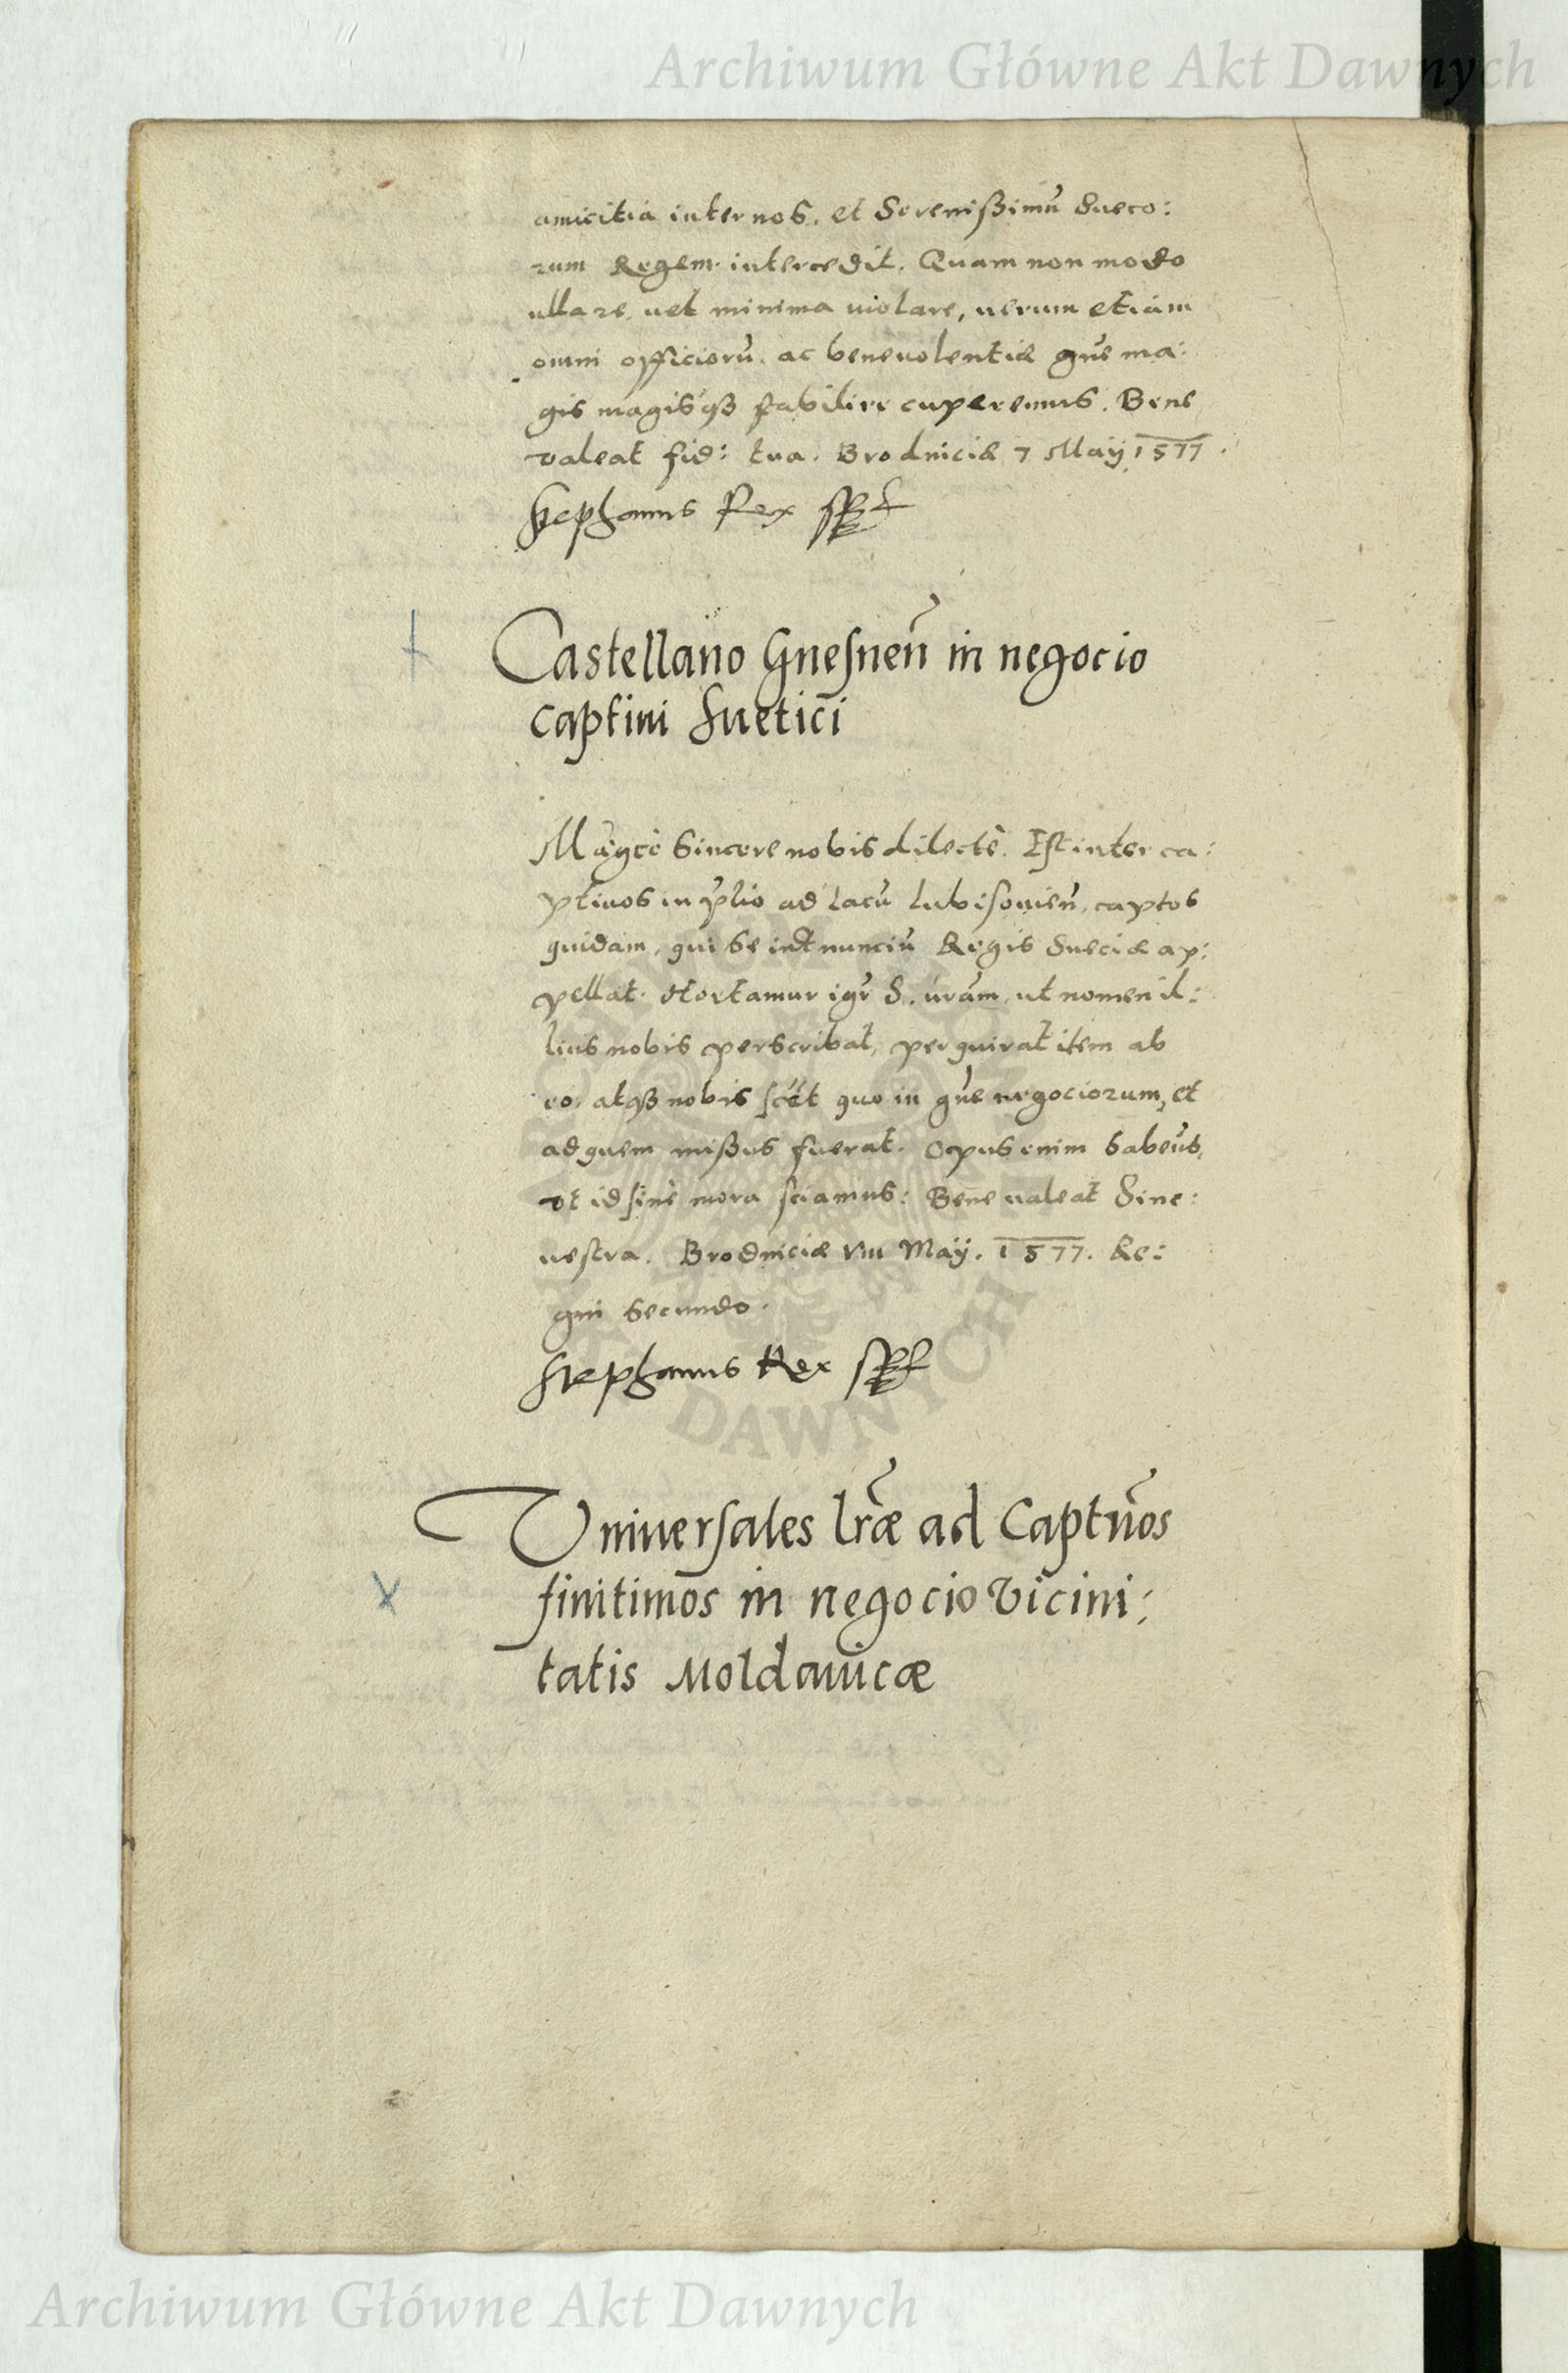 Archiwum Główne Akt Dawnych
amicitia inter nos, et Serenißimũ Sueco:
rum Regem intercedit. Quam non modo
ulla re, uel minima uiolare, uerum etiam
omni officiorũ ac beneuolentiæ gñe ma:
gis magisqß stabilire cuperemus. Bene
valeat fid: tua. Brodniciæ 7 Maÿ 1577.
Stephanus Rex sßt
Castellano Gnesnen̄ in negocio
captiui Suetici
Mag̃ce Sincere nobis dilecte. Est inter ca:
ptiuos in p̃lio ad lacũ Lubisouien̄, captos
quidam, qui se int̃nunciũ Regis Sueciæ ap:
pellat. Hortamur igr̃ S. ur̃am, ut nomen il:
lius nobis perscribat, perquirat item ab
eo, atqß nobis sc̃et quo in gñe negociorum, et
ad quem mißus fuerat. Opus enim habem̃s,
vt id sine mora sciamus: Bene ualeat Sinc:
uestra. Brodniciæ VIII Maÿ. 1577. Re:
gni secundo.
Stephanus Rex sßt
Uniuersales lr̃æ ad Captũos
finitimos in negocio vicini:
tatis Moldauicæ
DAWNYCH
Archiwum Główne Akt Dawnych